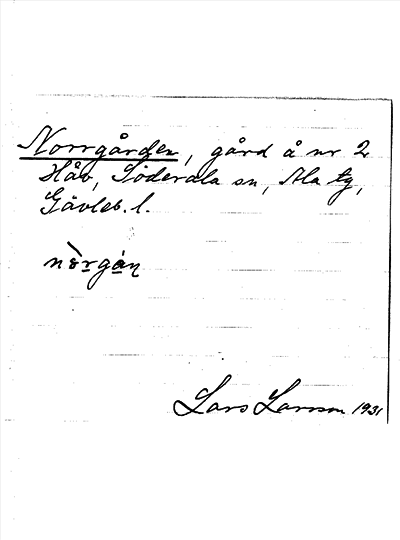 Norrgården, gård å nr 2
Håv, Söderala sn, Ala tg,
Gävleb. l.
Lars Larsson 1931